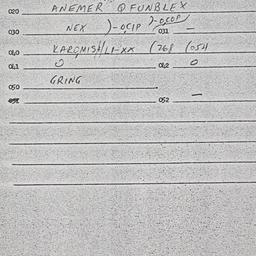 020 ANEMER @ FUNBLEX
030 NEX )-OCIP )-OCOP/ 031 —
040 KARQMISH/LI-XX (768 (054
041 0 042 0
050 GRING
051 052 —